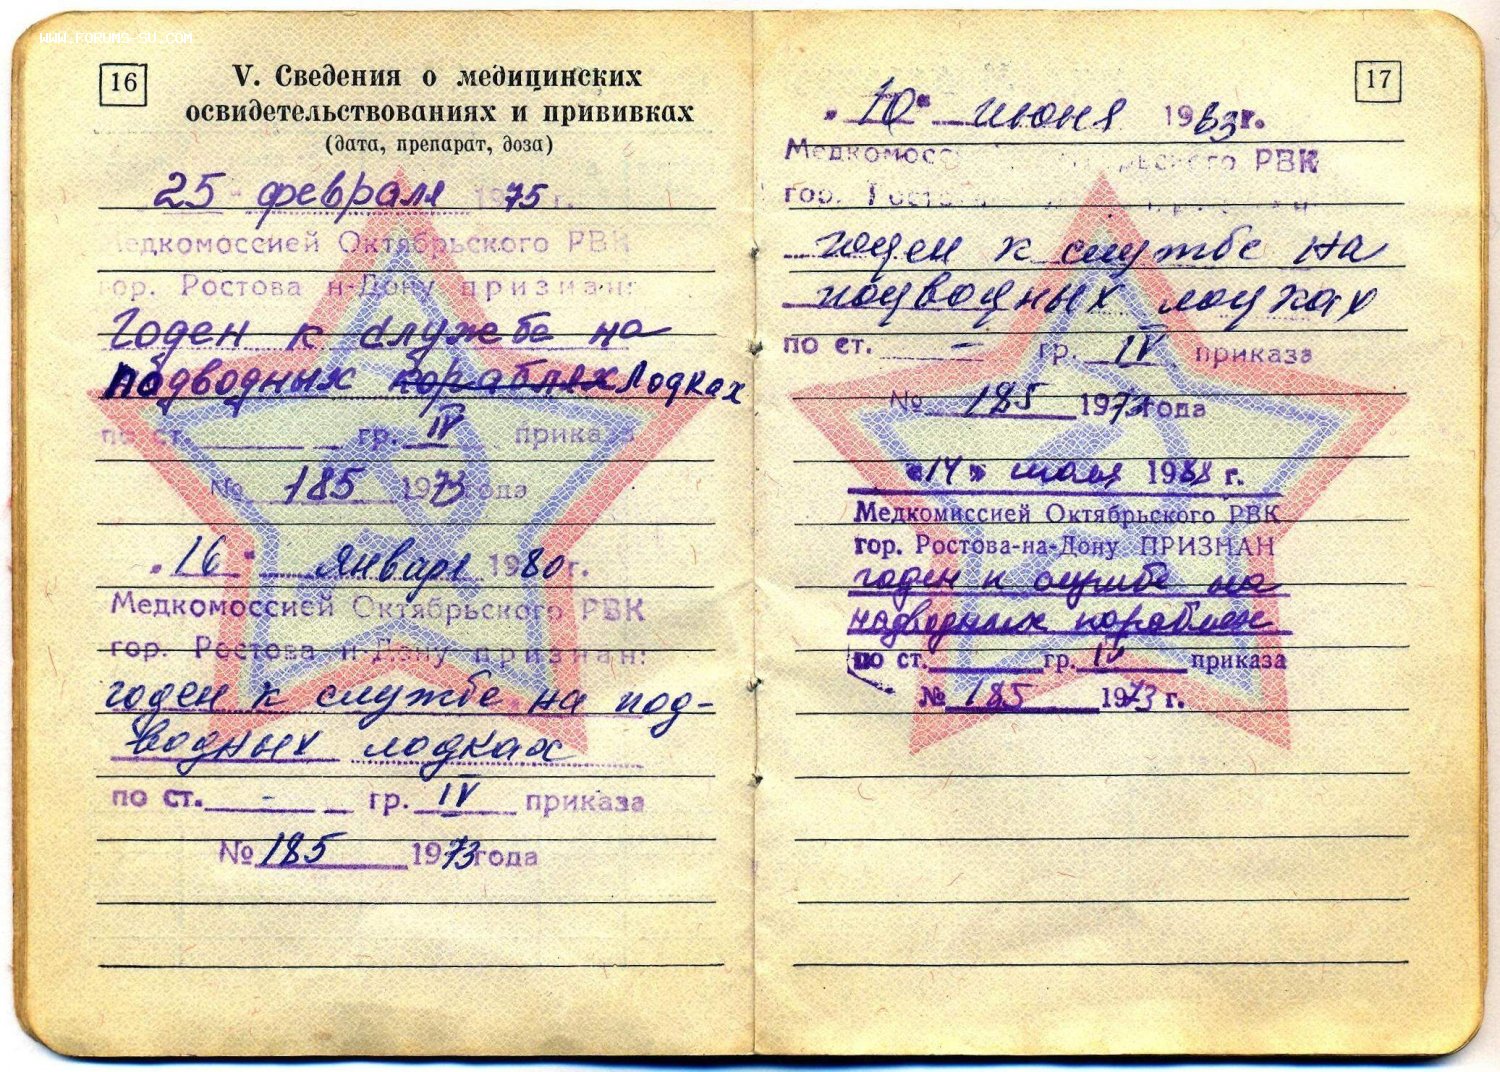 WWW.FORUMS-SU.COM
16
V. Сведения о медицинских
освидетельствованиях и прививках
(дата, препарат, доза)
25 " февраля 1975 г.
Медкомоссией Октябрьского РВК
гор. Ростова н-Дону признан:
годен к службе на
подводных кораблях лодках
по ст. гр. IV приказа
№ 185 1973 года
"16" января 1980 г.
Медкомоссией Октябрьского РВК
гор. Ростова н-Дону признан:
годен к службе на под-
водных лодках
по ст. - гр. IV приказа
№ 185 1973 года
17
"10" июня 1983 г.
Медкомосс РВК
гор.
годен к службе на
подводных лодках
по ст. - гр. IV приказа
№ 185 1973 года
«14» 1988 г.
Медкомиссией Октябрьского РВК
гор. Ростова-на-Дону ПРИЗНАН
годен к службе на
надводных кораблях
по ст. гр. IV приказа
№ 185 1973 г.